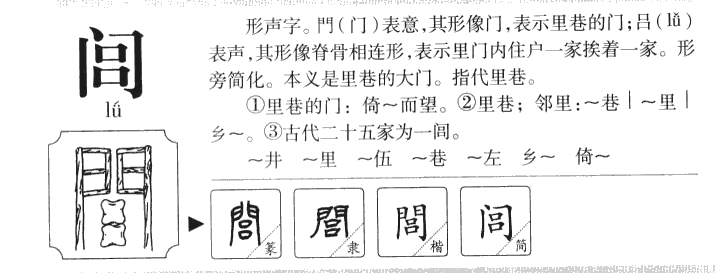 闾
lǘ
形声字。門(门)表意,其形像门,表示里巷的门;吕(lǚ)
表声,其形像脊骨相连形,表示里门内住户一家挨着一家。形
旁简化。本义是里巷的大门。指代里巷。
①里巷的门:倚～而望。②里巷;邻里:～巷｜～里｜
乡～。③古代二十五家为一闾。
～井 ～里 ～伍 ～巷 ～左 乡～ 倚～
閭 篆
閭 隶
閭 楷
闾 简